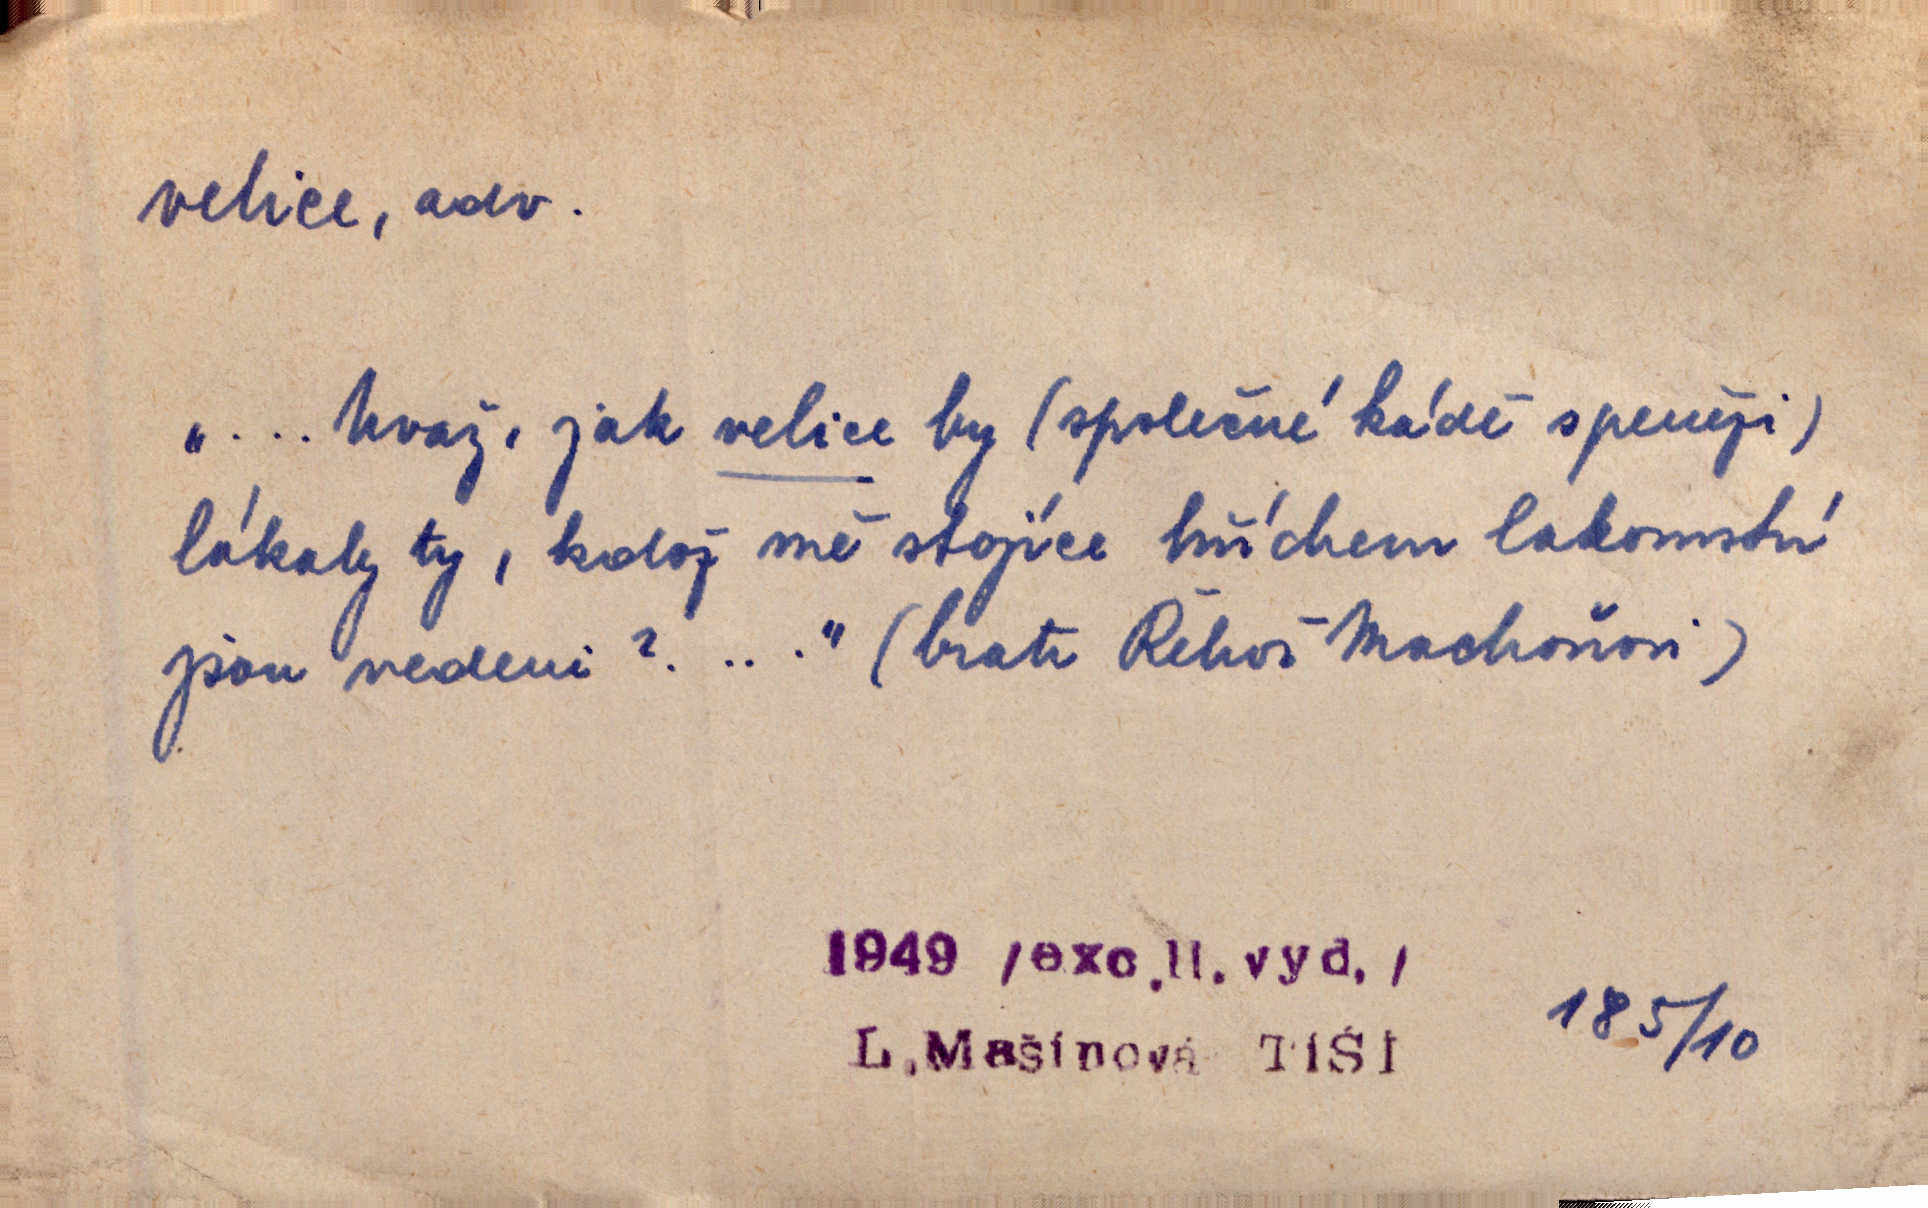 velice, adv.
„.... Uvaž, jak velice by (společné kádě s penězi)
lákaly ty, kdož mě stojíce hříchem lakomství
jsou vedeni?. ... ." (bratr Řehoř Machoňovi)
1949 /exc.II.vyd./
L.Mašínová TIŠÍ 185/10